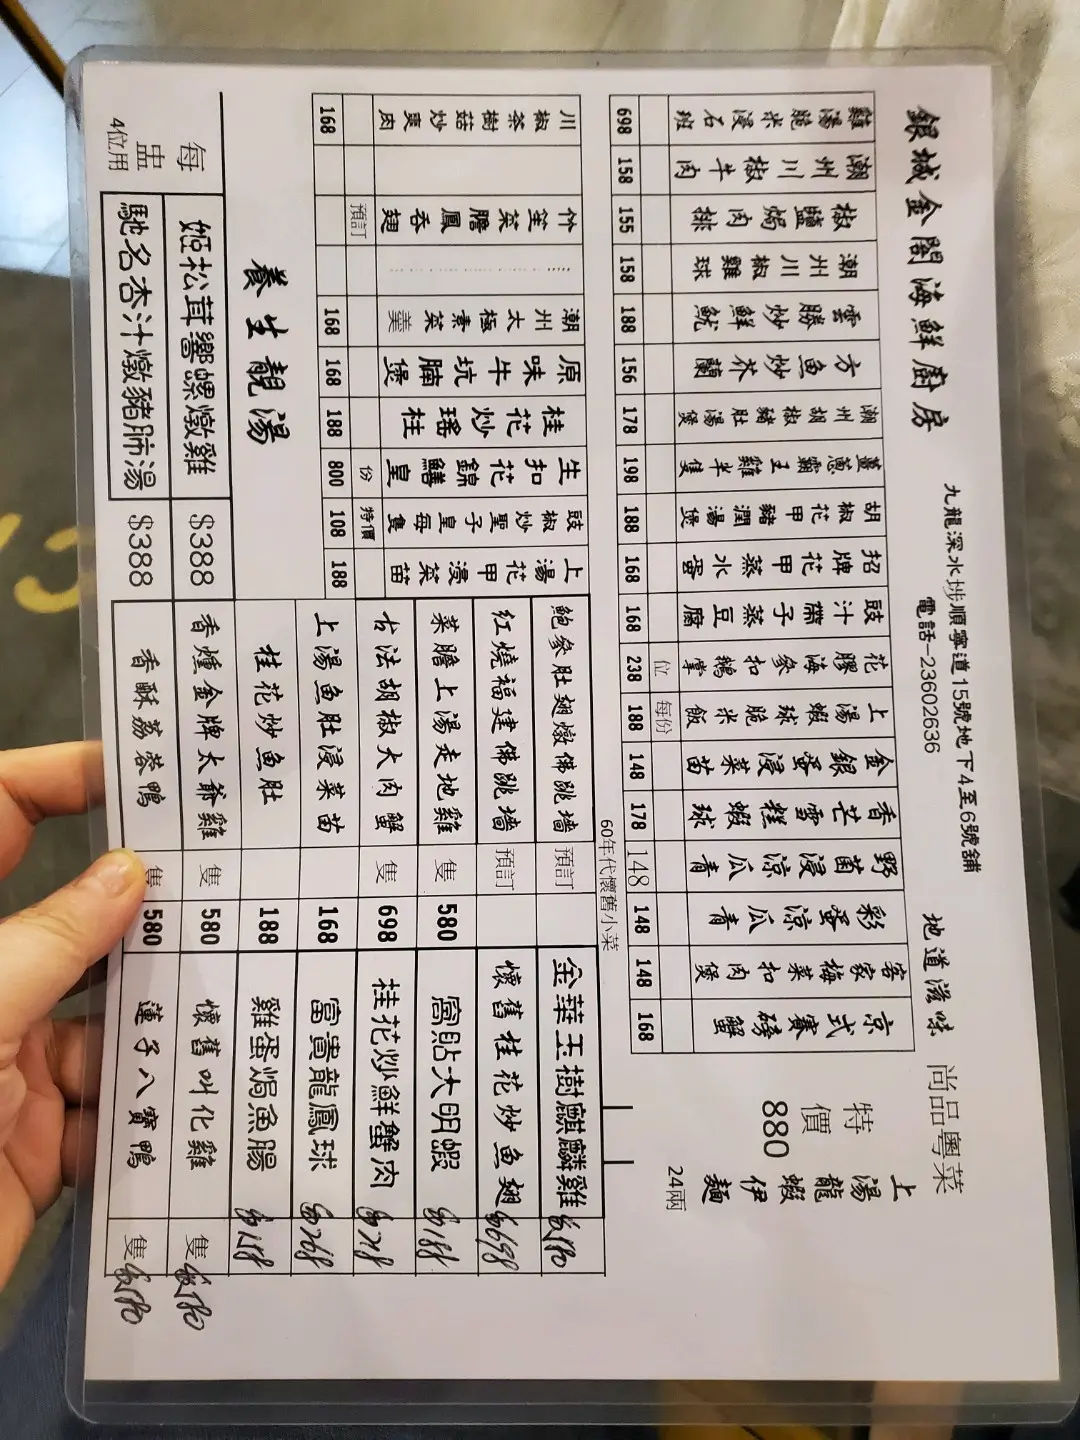 銀城金閣海鮮廚房
九龍深水埗順寧道15號地下4至6號舖
電話-23602636
地道滋味 尚品粵菜
雞湯脆米浸石班 698
潮州川椒牛肉 158
椒鹽焗肉排 155
潮州川椒雞球 158
雲勝炒鮮魷 188
方魚炒芥蘭 156
潮州胡椒豬肚湯煲 178
薑蔥霸王雞半隻 198
胡椒花甲豬潤湯煲 188
招牌花甲蒸水蛋 168
豉汁帶子蒸豆腐 168
花膠海參扣鵝掌 位 238
上湯蝦球脆米飯 每份 188
金銀蛋浸菜苗 148
香芒雪糕蝦球 178
野菌浸涼瓜青 148
彩蛋涼瓜青 148
客家梅菜扣肉煲 148
京式賽磅蟹 168
上湯龍蝦伊麵 24兩
特價 880
川椒茶樹菇炒爽肉 168
竹笙菜膽鳳吞翅 預訂
潮州太極素菜羹 168
原味牛坑腩煲 168
桂花炒瑤柱 188
生扣花錦鱔皇 份 800
豉椒炒聖子皇每隻 特價 108
上湯花甲浸菜苗 188
60年代懷舊小菜
鮑參肚翅燉佛跳墻 預訂
紅燒福建佛跳墻 預訂
菜膽上湯走地雞 隻 580
古法胡椒大肉蟹 隻 698
上湯魚肚浸菜苗 168
桂花炒魚肚 188
香燻金牌太爺雞 隻 580
香酥荔蓉鴨 隻 580
金華玉樹麒麟雞 $580
懷舊桂花炒魚翅 $698
窩貼大明蝦 $188
桂花炒鮮蟹肉 $218
富貴龍鳳球 $268
雞蛋焗魚腸 $158
懷舊叫化雞 隻 $580
蓮子八寶鴨 隻 $580
養生靚湯
每盅 4位用
姬松茸響螺燉雞 $388
馳名杏汁燉豬肺湯 $388